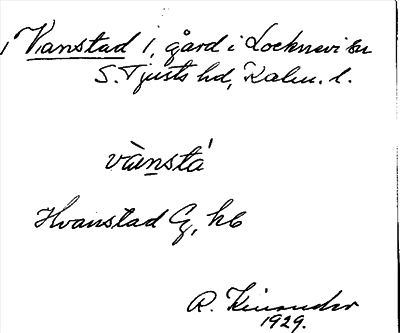 Vanstad 1, gård i Locknevi sn
S. Tjusts hd, Kalm. l.
vànstá
Hvanstad G, kb
R. Kinander
1929.